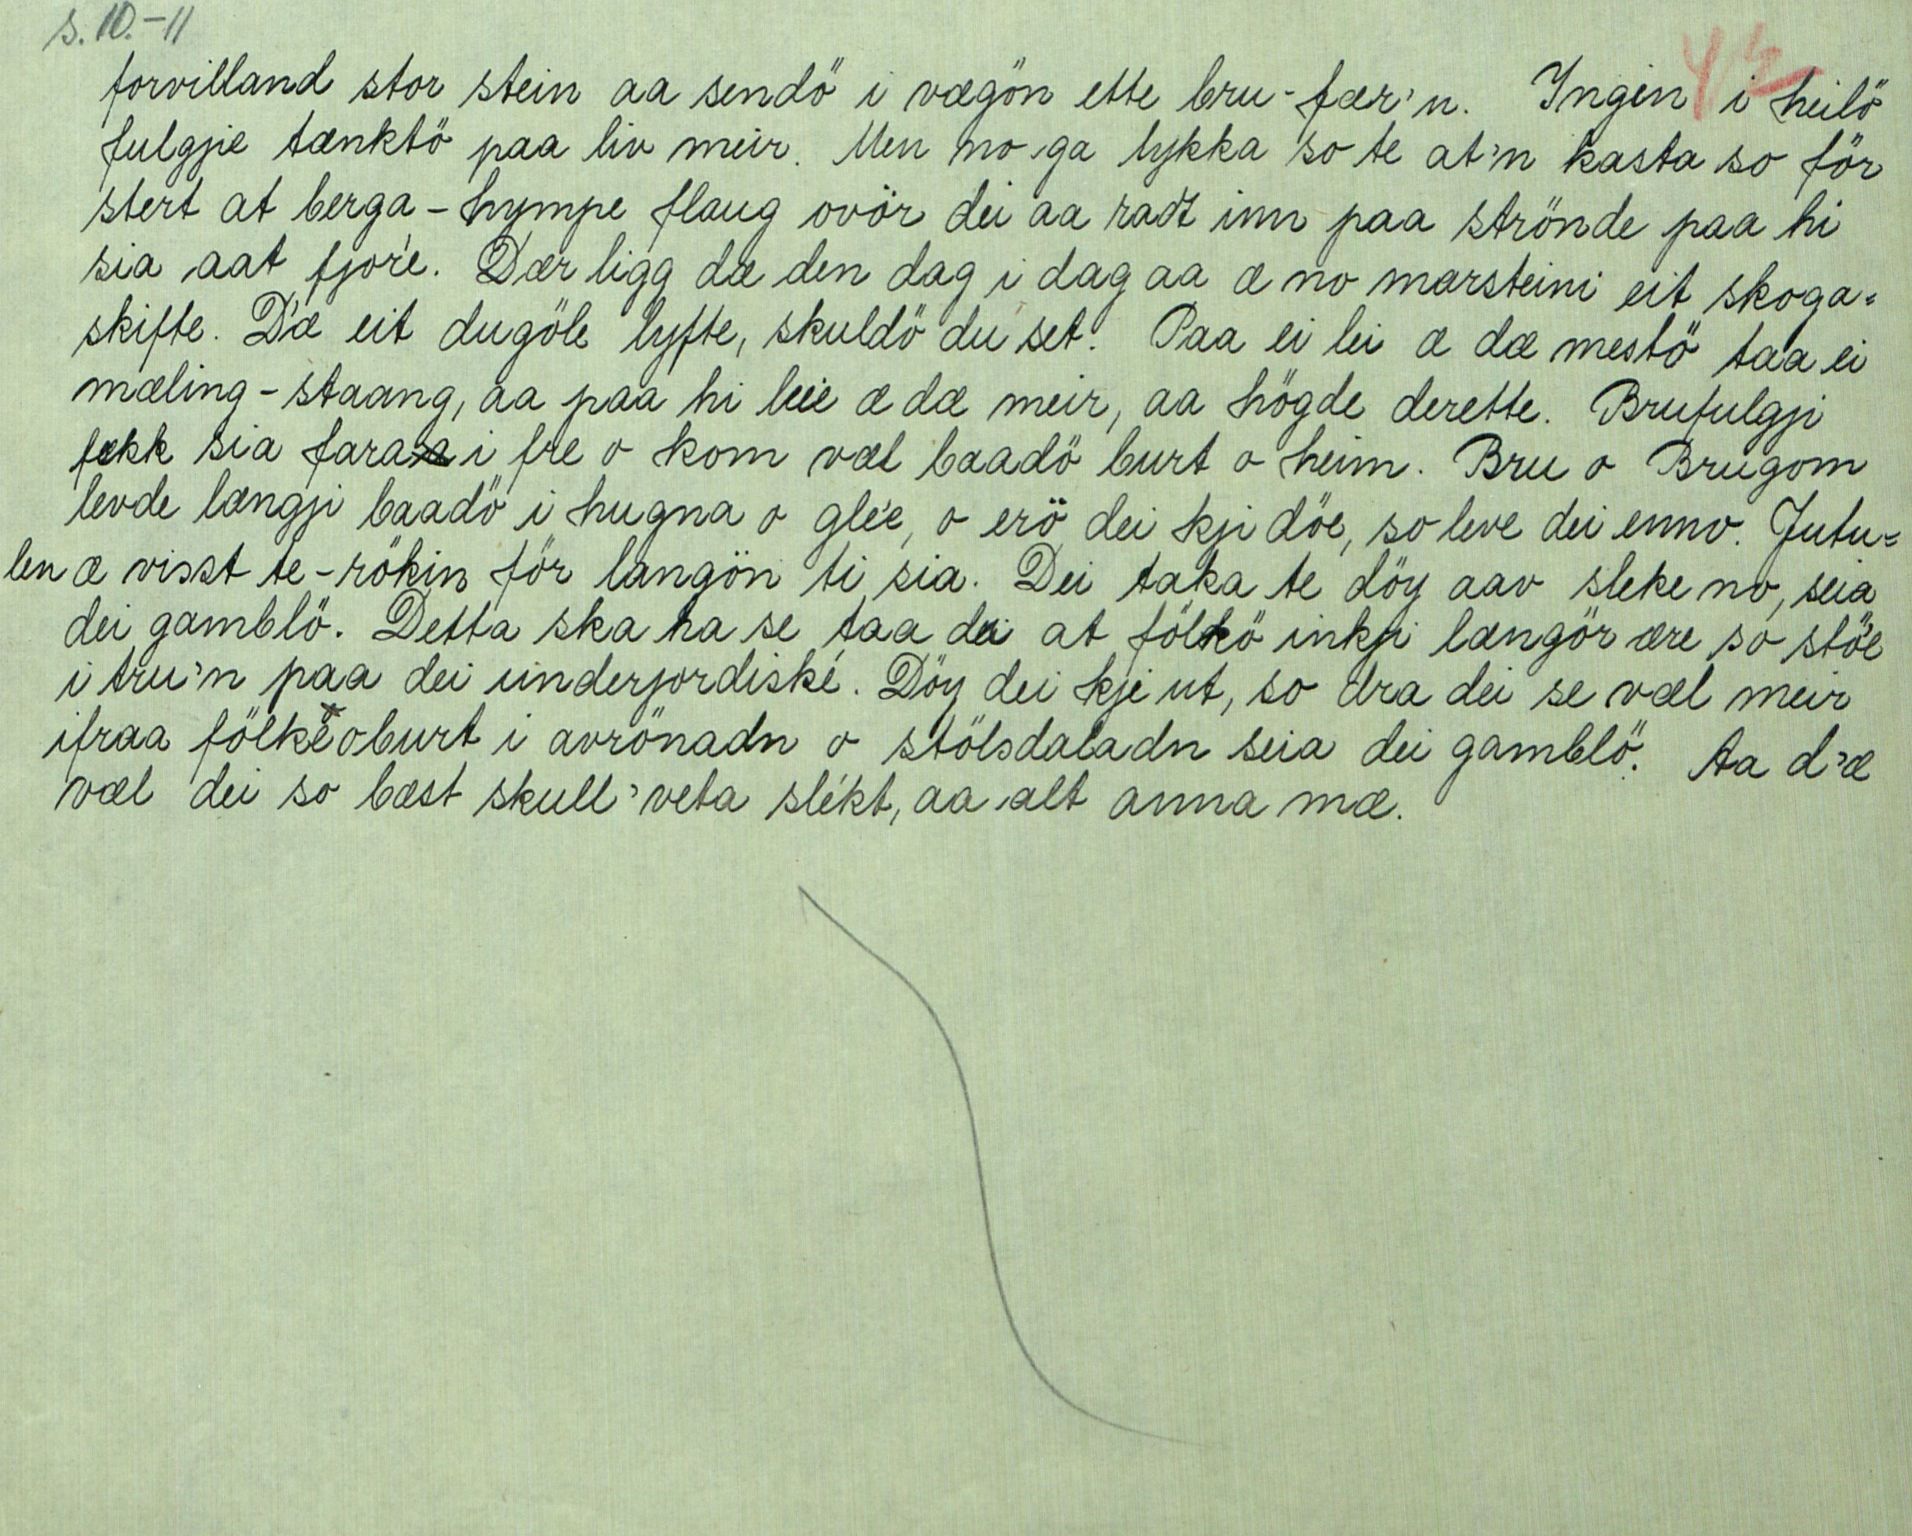 s. 10.-11
forvilland stor stein aa sendö i vægön ette bru-fær'n. Ingen i heilö
fulgje tænktö paa liv meir. Men no ga lykka so te at'n kasta so för
stert at berga-hympe flaug ovör dei aa radt inn paa strönde paa hi
sia aat fjor'e. Dær ligg dæ den dag i dag aa æ no marsteini eit skoga=
skifte. D'æ eit dugöle lyfte, skuldö du set. Paa ei lei æ dæ mestö taa ei
mæling-staang, aa paa hi leie æ dæ meir, aa högde derette. Brufulgji
fekk sia fara i fre o kom væl baadö burt o heim. Bru o Brugom
levde længji baadö i hugna o glé'e, o erö dei kji döe, so leve dei enno. Jutu=
len æ visst te-rökin för langön ti sia. Dei taka te döy aav sleke no, seia
dei gamblö. Detta ska ha se taa dei at fölkö inkji længör ære so stö'e
i tru'n paa dei underjordiské. Döy dei kje ut, so dra dei se væl meir
ifraa fölkë oburt i avrönadn o stölsdaladn seia dei gamblö. Aa d'æ
væl dei so bæst skull' veta slékt, aa alt anna mæ.